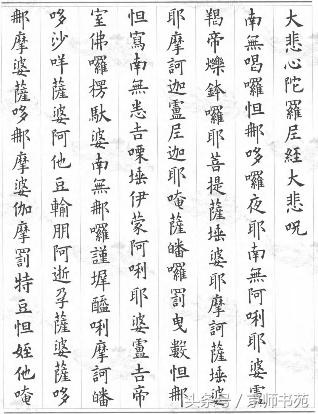 大悲心陀羅尼經大悲呪
南無喝囉怛那哆囉夜耶南無阿唎耶婆盧
羯帝爍鉢囉耶菩提薩埵婆耶摩訶薩埵婆
耶摩訶迦盧尼迦耶唵薩皤囉罰曳數怛那
怛寫南無悉吉嘌埵伊蒙阿唎耶婆盧吉帝
室佛囉楞馱婆南無那囉謹墀醯唎摩訶皤
哆沙咩薩婆阿他豆輸朋阿逝孕薩婆薩哆
那摩婆薩哆那摩婆伽摩罰特豆怛姪他唵
头条号 / 师书苑